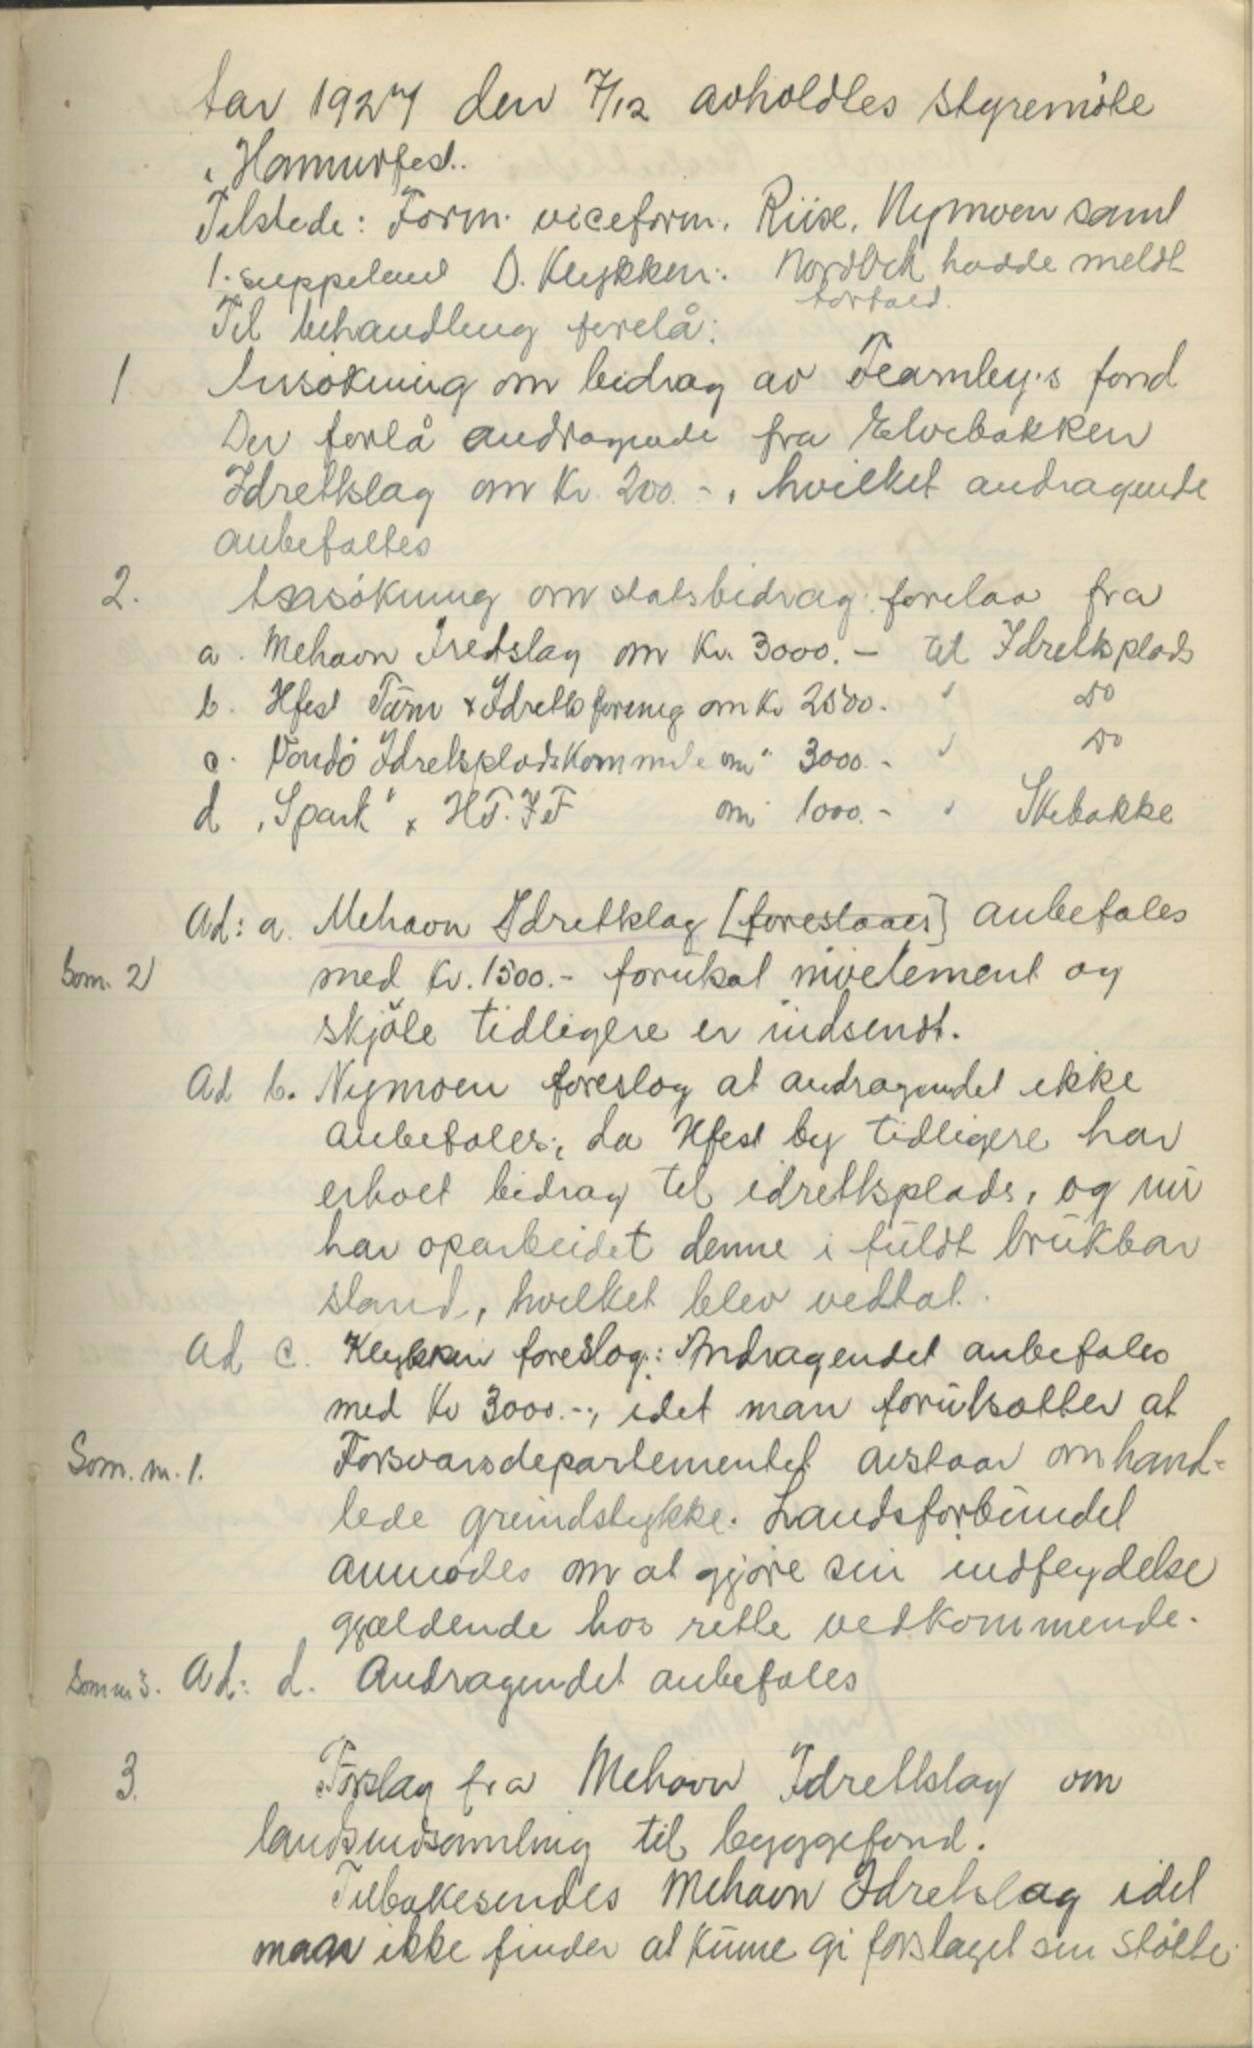 Aar 1927 den 7/12 avholdtes styremöte
i Hammerfest.
Tilstede: Form. viceform. Riise, Nymoen samt
1. suppleant D. Klykken. Nordbek hadde meldt
forfald.
Til behandling forelå:
1 Ansökning om bidrag av Fearnley's fond
Der forlå andragende fra Elvebakken
Idretslag om Kr. 200.-, hvilket andragende
anbefaltes
2. Ansökning om statsbidrag forelaa fra
a. Mehavn Iredslag om Kr. 3000.- til Idretsplads
b. Hfest Turn & Idretsforening om Kr 2500. " Do
c. Vardö Idretsplads Kommite om " 3000.- " Do
d "Spark" & HT.IF om 1000.- " Skibakke
Ad: a. Mehavn Idretslag [foreslaaes] anbefales
Som. 2 med Kr. 1500.- forutsat nivelement og
skjöte tidligere er indsendt.
Ad b. Nymoen foreslog at andragendet ikke
anbefales, da Hfest by tidligere har
erholt bidrag til idretsplads, og nu
har oparbeidet denne i fuldt brukbar
stand, hvilket blev vedtat.
Ad c. Klykken foreslog: Andragendet anbefales
med Kr 3000.-, idet man forutsætter at
Som. nr. 1. Forsvarsdepartementet avstaar omhand-
lede grundstykke. Landsforbundet
anmodes om at gjöre sin indflydelse
gjældende hos rette vedkommende.
Som nr 3. Ad: d. Andragendet anbefales
3. Forslag fra Mehavn Idretslag om
landsindsamling til byggefond.
Tilbakesendes Mehavn Idretslag idet
man ikke finder at kunne gi forslaget sin stötte.